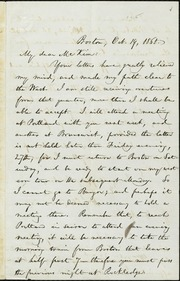 Boston, Oct. 19, 1865.
My dear McKim:
Your letters have greatly relieved
my mind, and made my path clear to
the West. I am still receiving invitations
from that quarter, more than I shall be able
to accept. I will attend a meeting
at Portland with you next week, and
another at Brunswick, provided the latter is
not held later than Friday evening,
for I must return to Boston on Sat-
urday, and be ready to start on my west-
ern tour on the subsequent Monday. So
I cannot go to Bangor; and perhaps it
may not be deemed necessary to hold a
meeting there. Remember that, to reach
Portland in season to attend an evening
meeting, it will be necessary to take the
morning train from Boston that leaves
at half past 7; therefore you must pass
the previous night at Rockledge.